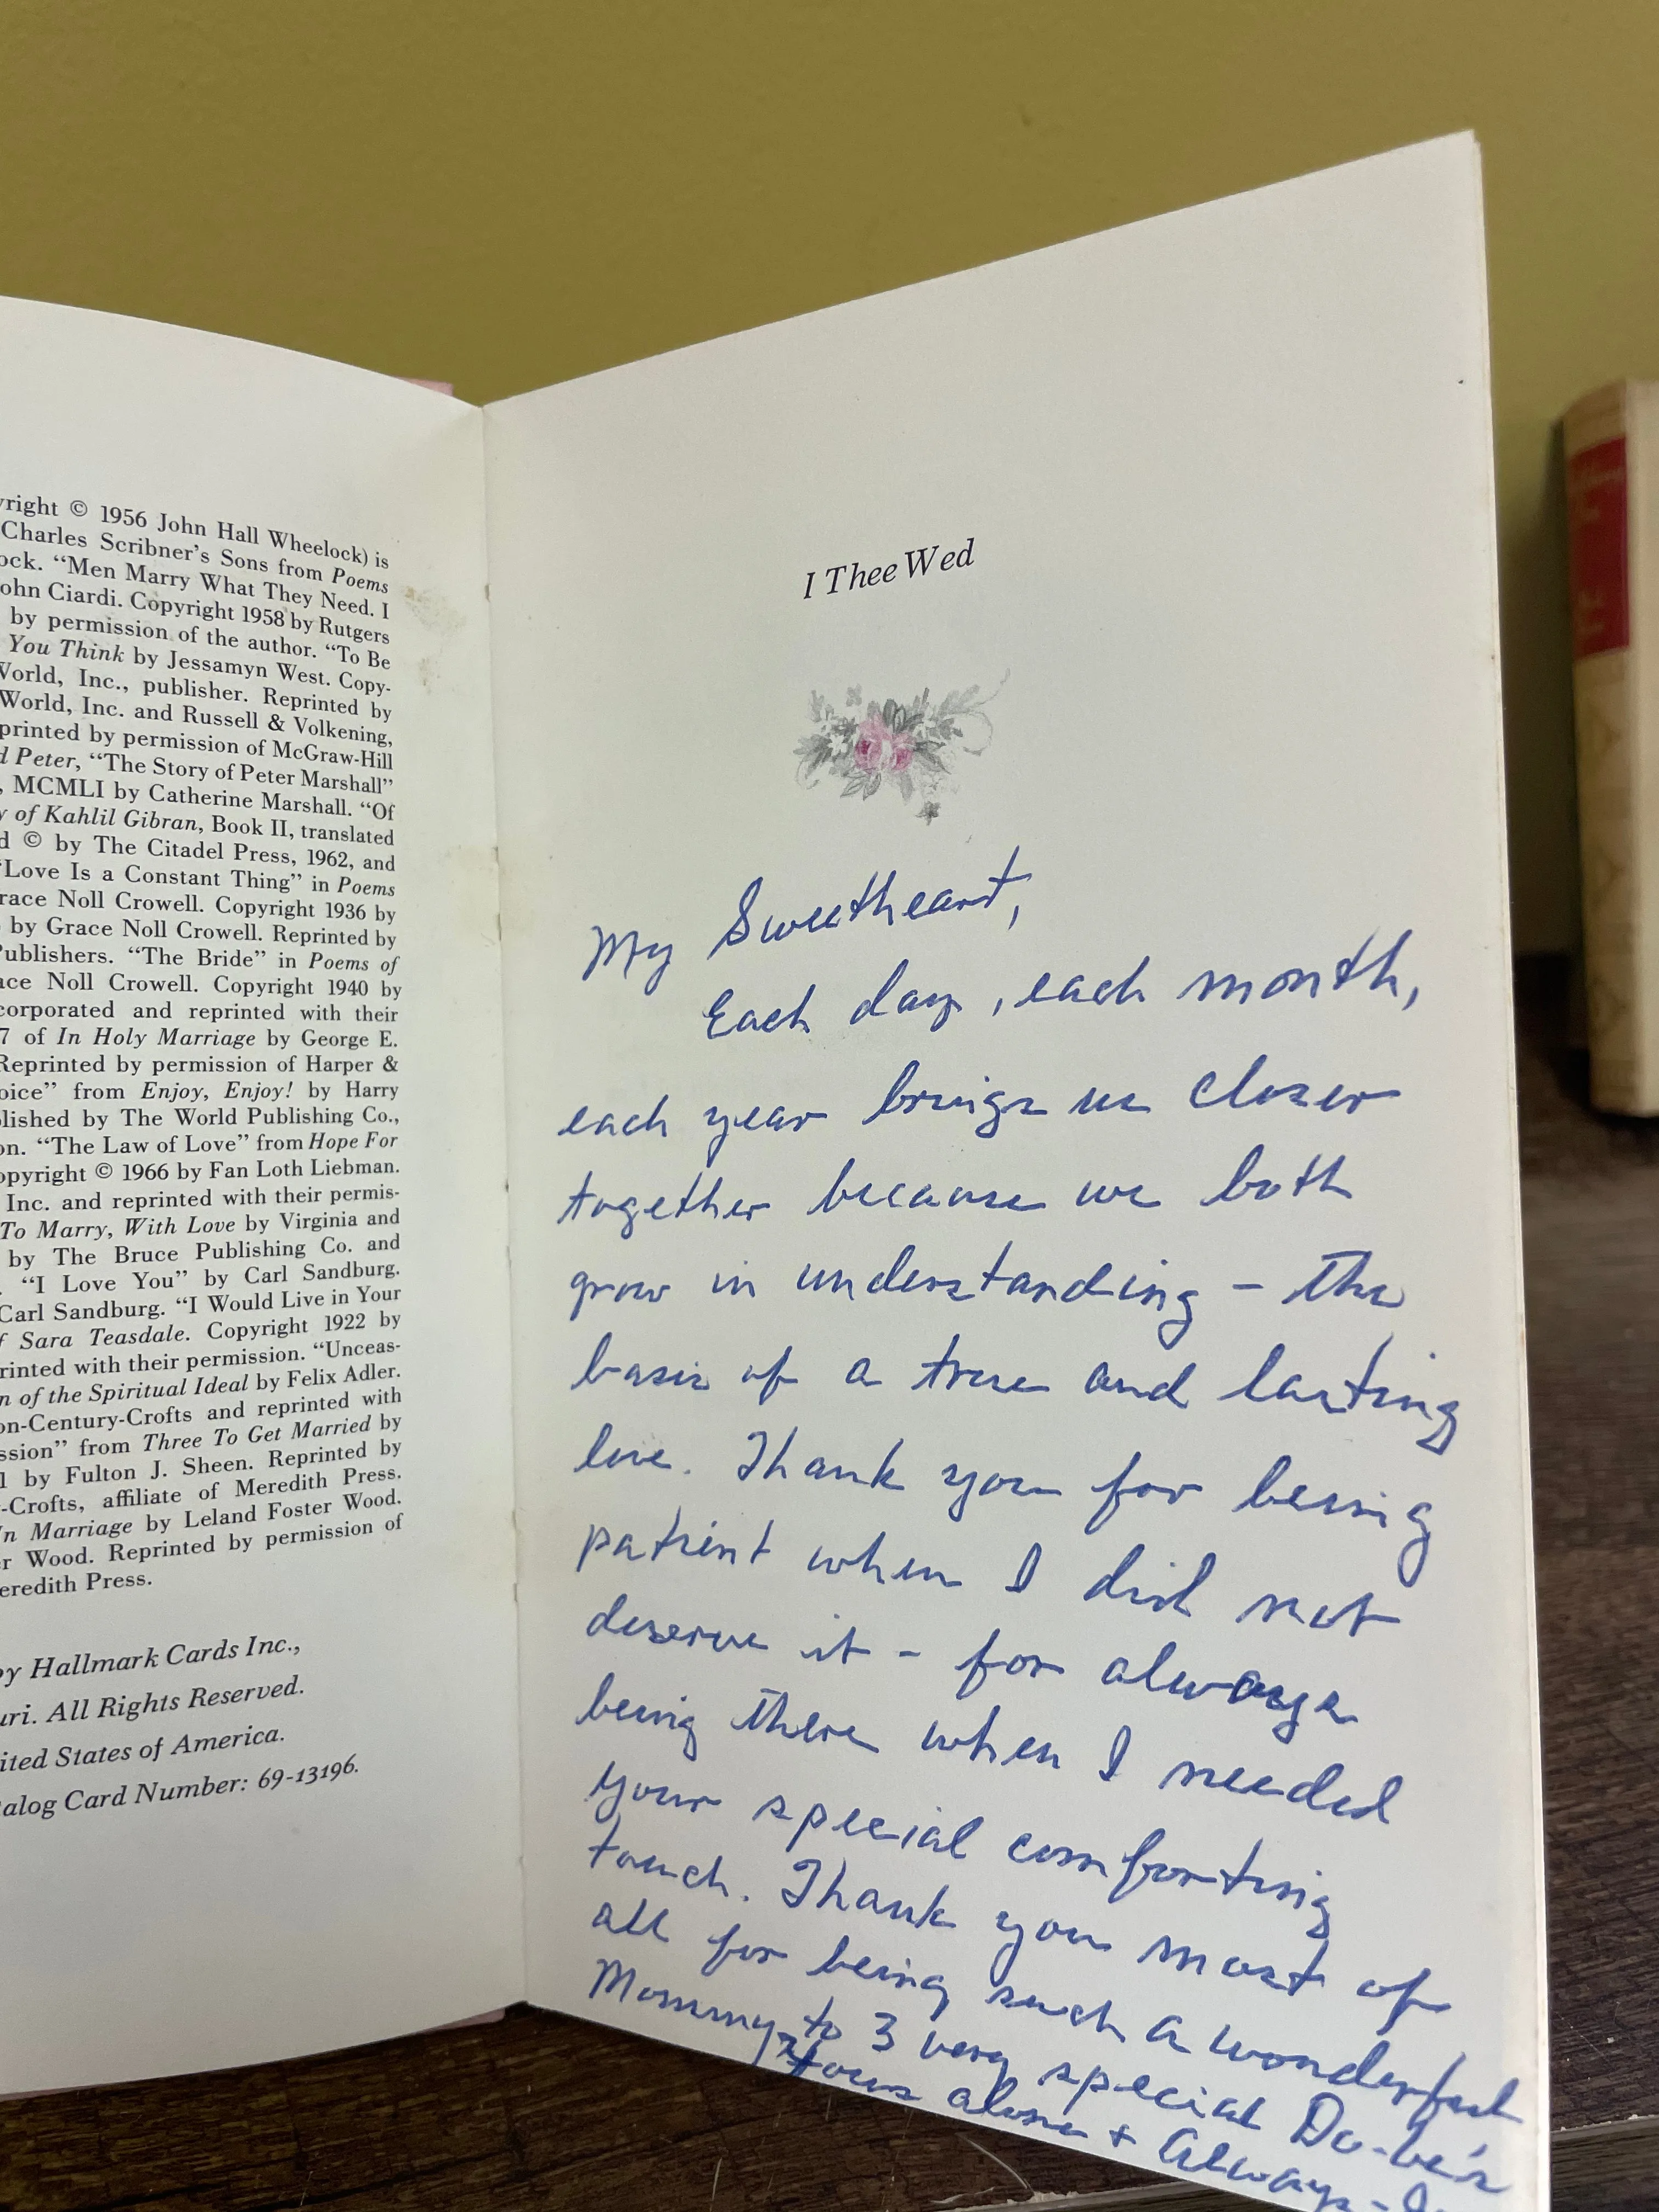 yright © 1956 John Hall Wheelock) is
Charles Scribner's Sons from Poems
ock. “Men Marry What They Need. I
ohn Ciardi. Copyright 1958 by Rutgers
by permission of the author. “To Be
You Think by Jessamyn West. Copy-
World, Inc., publisher. Reprinted by
World, Inc. and Russell & Volkening,
printed by permission of McGraw-Hill
d Peter, “The Story of Peter Marshall”
, MCMLI by Catherine Marshall. “Of
y of Kahlil Gibran, Book II, translated
d © by The Citadel Press, 1962, and
“Love Is a Constant Thing” in Poems
race Noll Crowell. Copyright 1936 by
by Grace Noll Crowell. Reprinted by
Publishers. “The Bride” in Poems of
ace Noll Crowell. Copyright 1940 by
corporated and reprinted with their
7 of In Holy Marriage by George E.
Reprinted by permission of Harper &
oice” from Enjoy, Enjoy! by Harry
blished by The World Publishing Co.,
on. “The Law of Love” from Hope For
opyright © 1966 by Fan Loth Liebman.
Inc. and reprinted with their permis-
To Marry, With Love by Virginia and
by The Bruce Publishing Co. and
. “I Love You” by Carl Sandburg.
Carl Sandburg. “I Would Live in Your
f Sara Teasdale. Copyright 1922 by
rinted with their permission. “Unceas-
n of the Spiritual Ideal by Felix Adler.
on-Century-Crofts and reprinted with
ssion” from Three To Get Married by
1 by Fulton J. Sheen. Reprinted by
-Crofts, affiliate of Meredith Press.
In Marriage by Leland Foster Wood.
er Wood. Reprinted by permission of
eredith Press.
by Hallmark Cards Inc.,
uri. All Rights Reserved.
ited States of America.
alog Card Number: 69-13196.
I Thee Wed
My Sweetheart,
Each day, each month,
each year brings us closer
together because we both
grow in understanding - the
basis of a true and lasting
love. Thank you for being
patient when I did not
deserve it - for always
being there when I needed
your special comforting
touch. Thank you most of
all for being such a wonderful
Mommy to 3 very special Do-be's
Yours alone + Always -